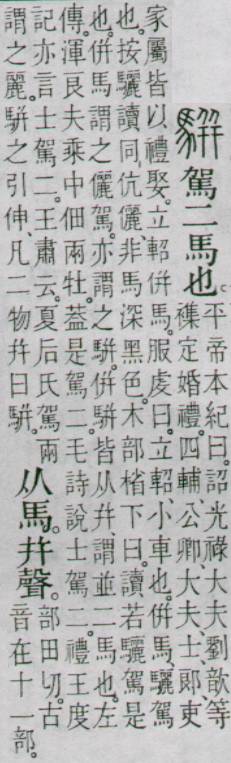 駢駕二馬也。
平帝本紀曰。詔光祿大夫劉歆等
襍定婚禮。四輔、公卿、大夫、士、郎、吏
家屬皆以禮娶。立軺倂馬。服虔曰。立軺、小車也。倂馬、驪駕
也。按驪讀同伉儷。非馬深黑色。木部下曰。讀若驪駕是
也。倂馬謂之儷駕。亦謂之駢。倂駢皆从幷、謂並二馬也。左
傳。渾良夫乘中佃兩牡。葢是駕二。毛詩說士駕二。禮王度
記亦言士駕二。王肅云。夏后氏駕兩
謂之麗。駢之引伸、凡二物幷曰駢。
从馬。幷聲。
部田切。古
音在十一部。